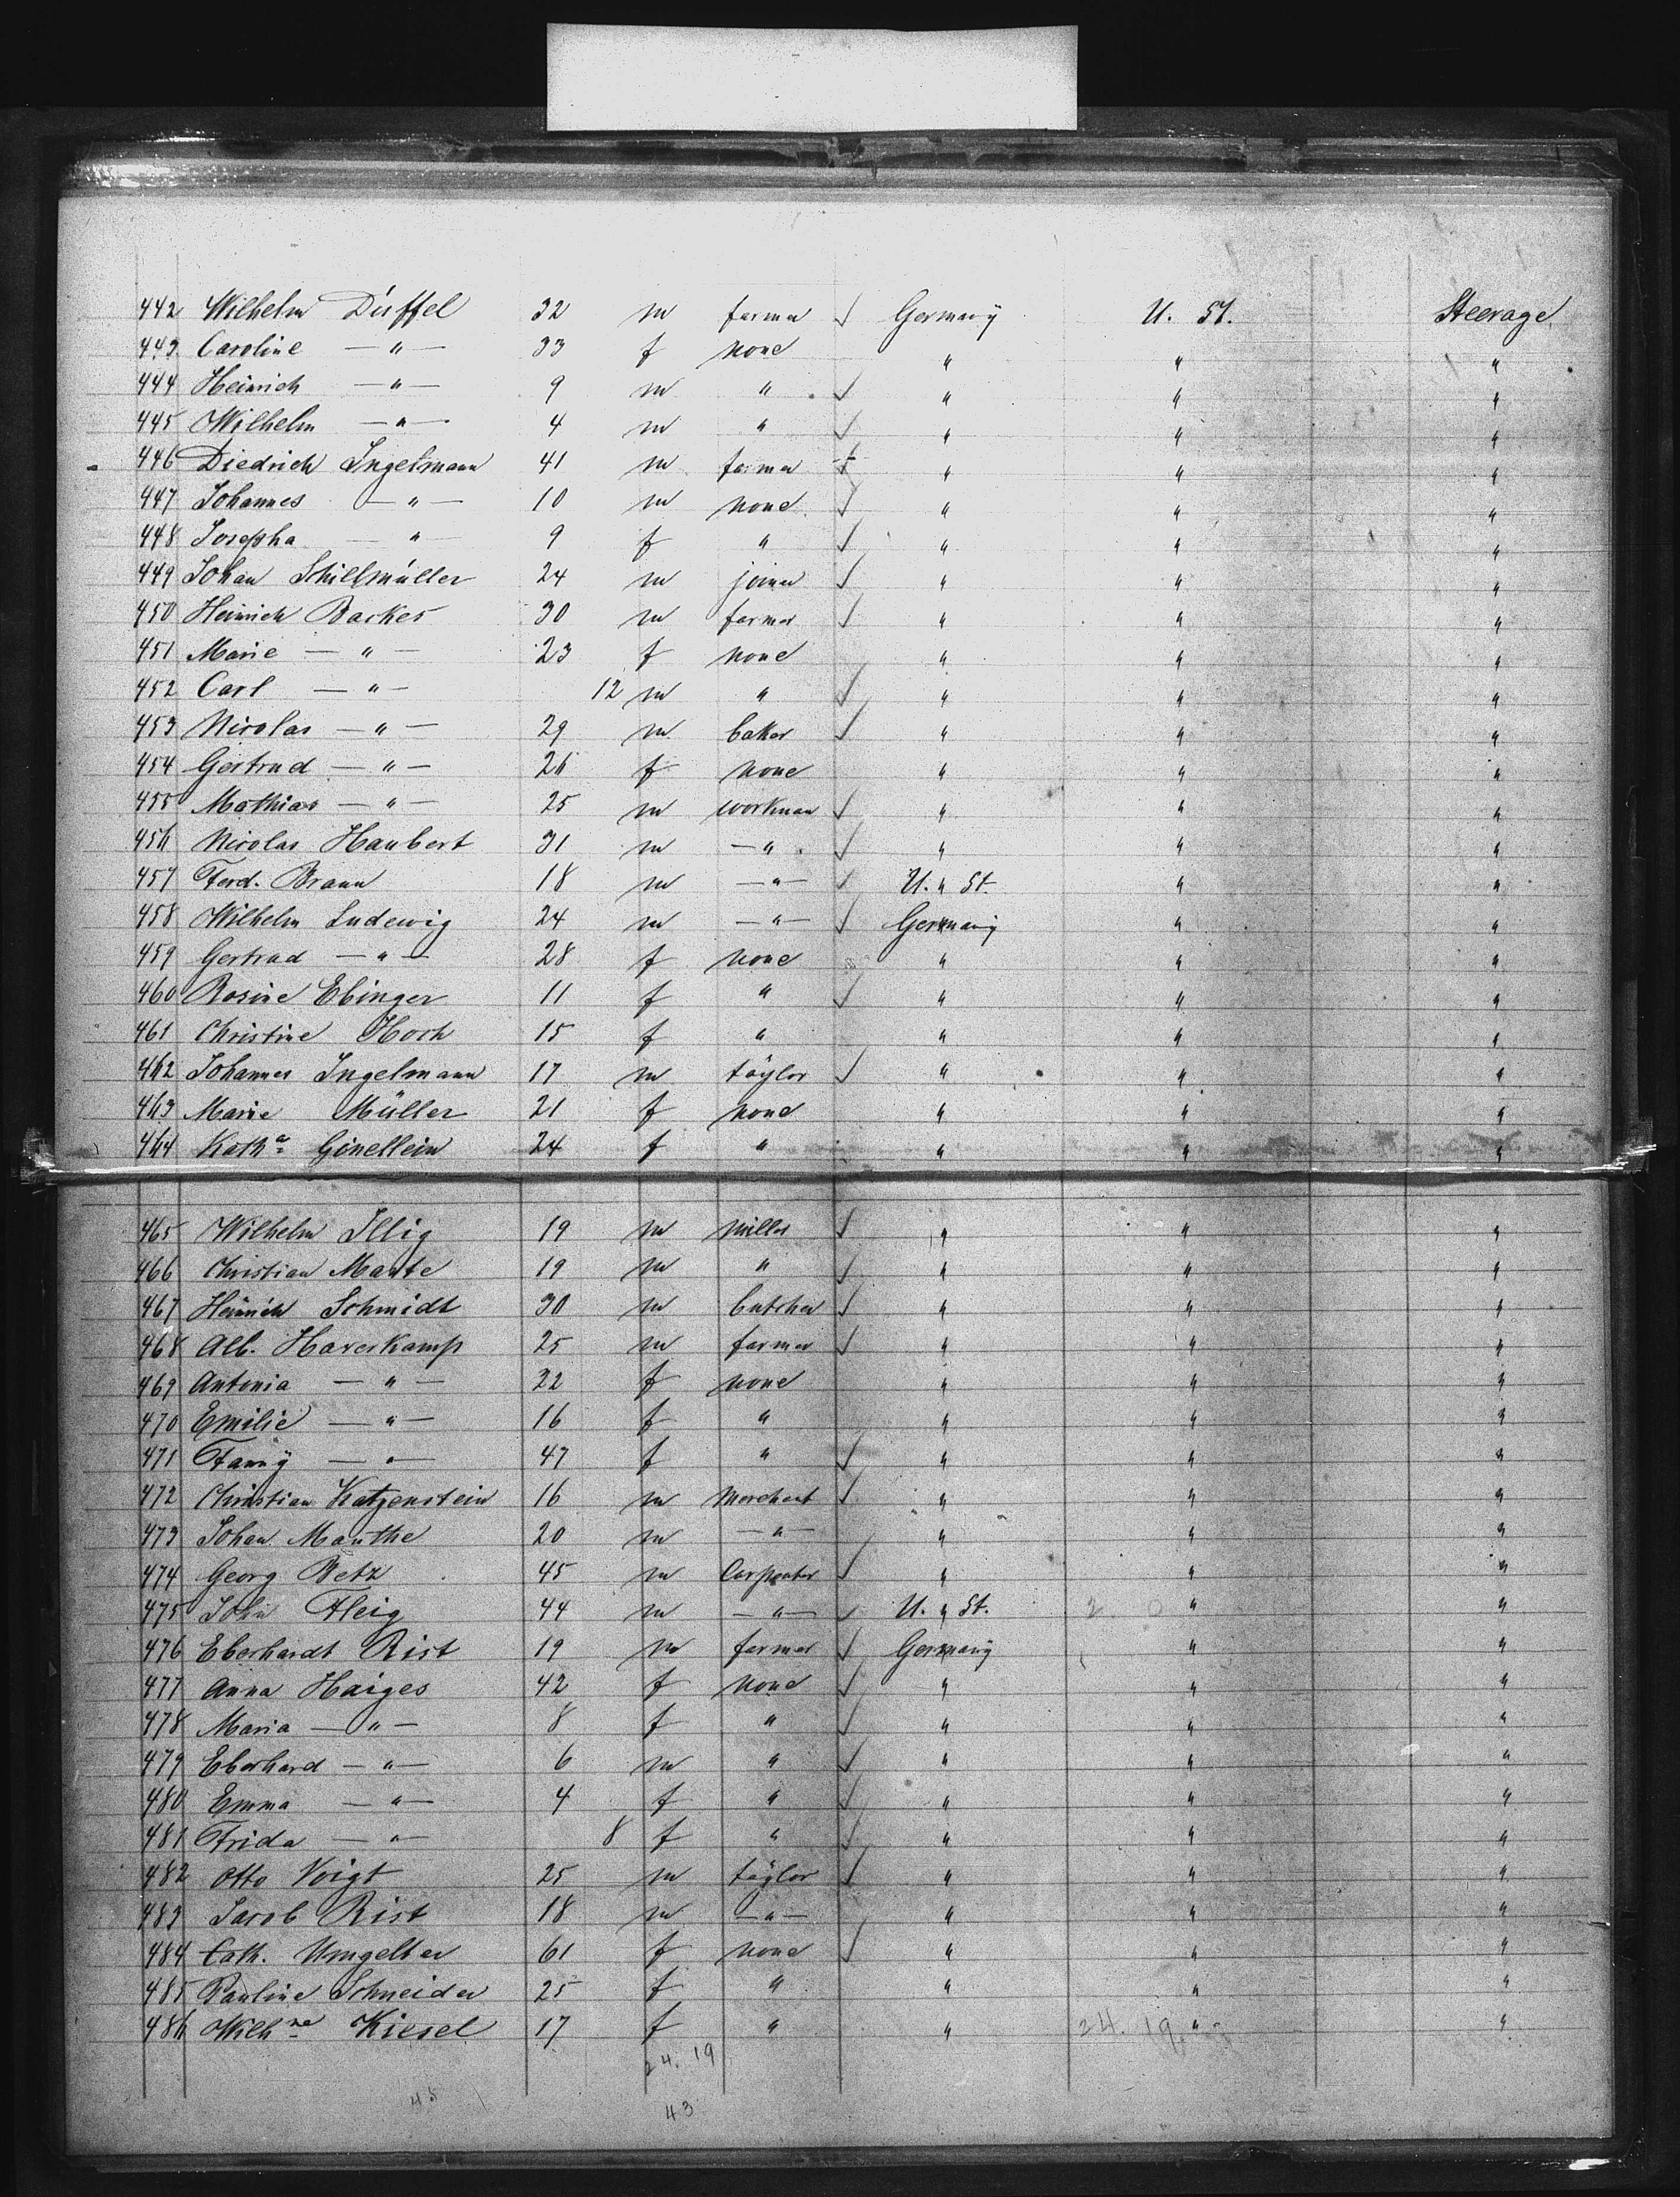 442 Wilhelm Düffel 32 m farmer ✓ Germany U. St. Steerage
443 Caroline — " — 33 f none " " "
444 Heinrich — " — 9 m " ✓ " " "
445 Wilhelm — " — 4 m " ✓ " " "
446 Diedrich Ingelmann 41 m farmer ✓ " " "
447 Johannes — " — 10 m none ✓ " " "
448 Josepha — " — 9 f " ✓ " " "
449 Johan Schillmüller 24 m joiner ✓ " " "
450 Heinrich Backes 30 m farmer ✓ " " "
451 Marie — " — 23 f none " " "
452 Carl — " — 12 m " ✓ " " "
453 Nicolas — " — 29 m baker ✓ " " "
454 Gertrud — " — 26 f none " " "
455 Mathias — " — 25 m workman ✓ " " "
456 Nicolas Haubert 31 m — " ✓ " " "
457 Ferd. Braun 18 m — " — ✓ U. " St. " "
458 Wilhelm Ludewig 24 m — " — ✓ Germany " "
459 Gertrud — " — 28 f none " " "
460 Rosine Ebinger 11 f " ✓ " " "
461 Christine Hoch 15 f " " " "
462 Johannes Ingelmann 17 m taylor ✓ " " "
463 Marie Müller 21 f none " " "
464 Katha 24 f " " " "
465 Wilhelm Illig 19 m miller ✓ " " "
466 Christian Mante 19 m " ✓ " " "
467 Heinrich Schmidt 30 m butcher ✓ " " "
468 Alb. Haverkamp 25 m farmer ✓ " " "
469 Antonia — " — 22 f none " " "
470 Emilie — " — 16 f " " " "
471 Fanny — " — 47 f " ✓ " " "
472 Christian Katzenstein 16 m Merchant ✓ " " "
473 Johan Manthe 20 m — " — " " "
474 Georg Betz 45 m Carpenter ✓ " " "
475 John Fleig 44 m — " — ✓ U. " St. 2 0 " "
476 Eberhardt Rist 19 m farmer ✓ Germany " "
477 Anna Haiges 42 f none ✓ " " "
478 Maria — " — 8 f " ✓ " " "
479 Eberhard — " — 6 m " ✓ " " "
480 Emma — " — 4 f " ✓ " " "
481 Frida — " — 8 f " ✓ " " "
482 Otto Voigt 25 m taylor ✓ " " "
483 Jacob Rist 18 m — " — " " "
484 Cath. Umgelter 61 f none ✓ " " "
485 Pauline Schneider 25 f " " " "
486 Wilhne Kiesel 17 f " " 24. 19 " "
24. 19
45 43